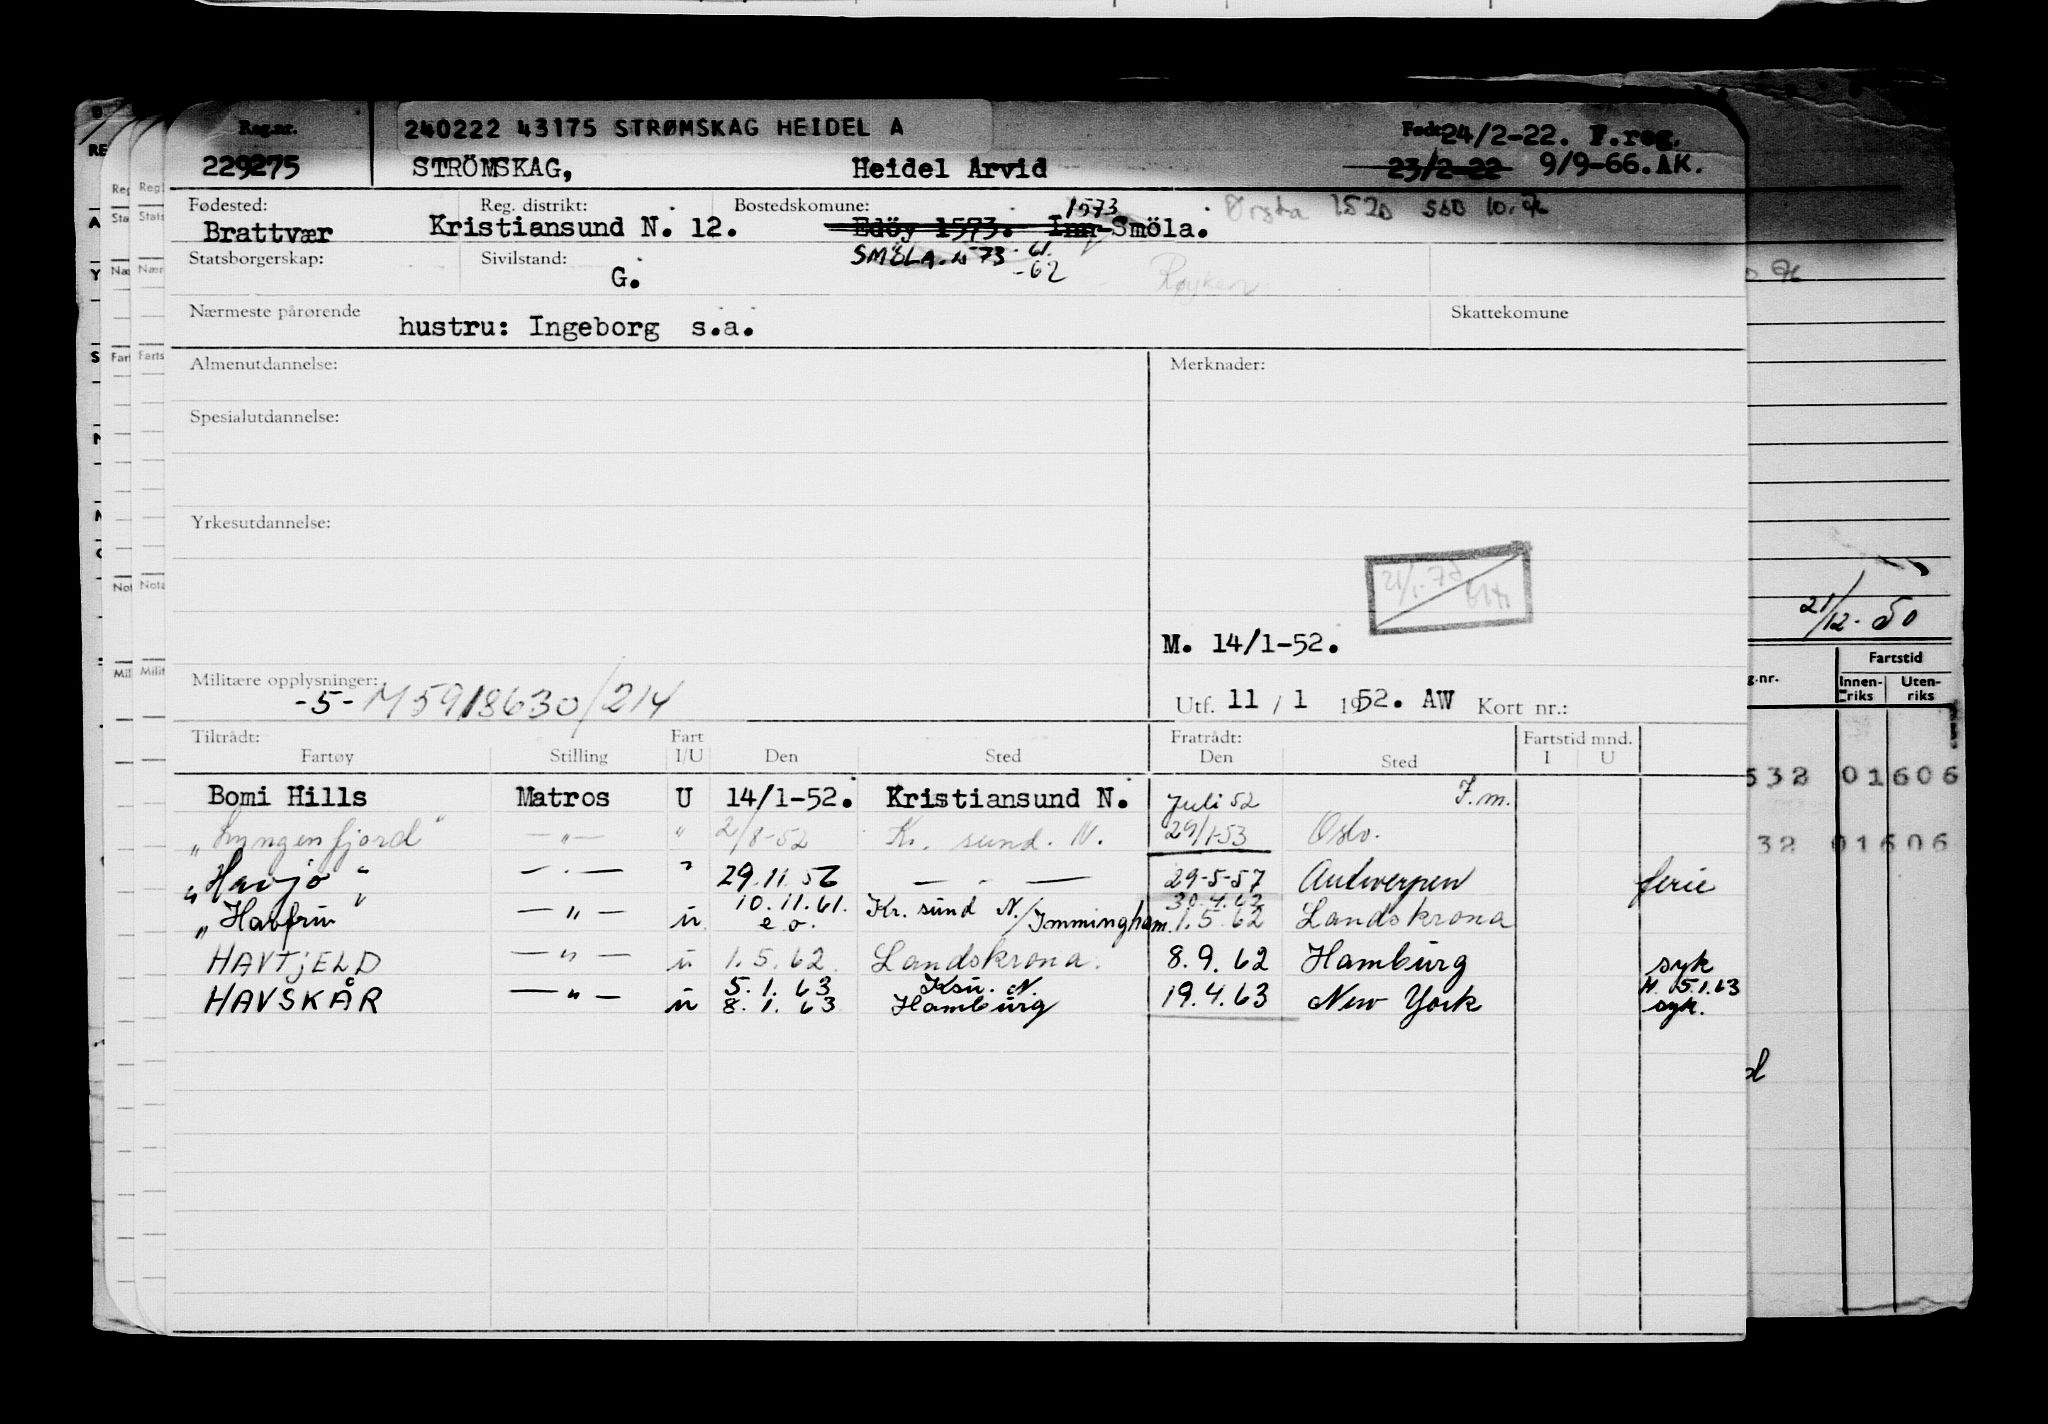 Reg.nr. 240222 43175 STRØMSKAG HEIDEL A Født 24/2-22. F.reg.
229275 STRÖMSKAG, Heidel Arvid 23/2-22 9/9-66.AK.
Fødested: Reg. distrikt: Bostedskomune: 1573 Ørsta 1520
Brattvær Kristiansund N. 12. Edöy 1573. Inn-Smöla.
Statsborgerskap: Sivilstand: SMÖLA. 1573 -61.
G. -62 Røyken
Nærmeste pårørende Skattekomune
hustru: Ingeborg s.a.
Almenutdannelse: Merknader:
Spesialutdannelse:
Yrkesutdannelse:
21/12-50
M. 14/1-52.
Militære opplysninger:
-5- M5918630/214 Utf. 11 / 1 1952. AW Kort nr.:
Tiltrådt: Fart Fratrådt: Fartstid mnd.
Fartøy Stilling I/U Den Sted Den Sted I U
Bomi Hills Matros U 14/1-52. Kristiansund N. Juli 52 F.m.
"Lyngenfjord" —"— " 2/8-52 Kr. sund. N. 29/1-53 Oslo.
"Havjo" —"— " 29.11.56 —"— 29-5-57 Antwerpen ferie
"Havfrin" —"— u 10.11.61. Kr. sund N./Immingham 30.4.62
e.o. 1.5.62 Landskrona
HAVTJELD —"— u 1.5.62 Landskrona. 8.9.62 Hamburg syk
HAVSKÅR —"— u 5.1.63 Ksu. N 19.4.63 New York 5.1.63
8.1.63 Hamburg syk.
Fartstid
Innen-riks Uten-riks
532 01606
32 01606